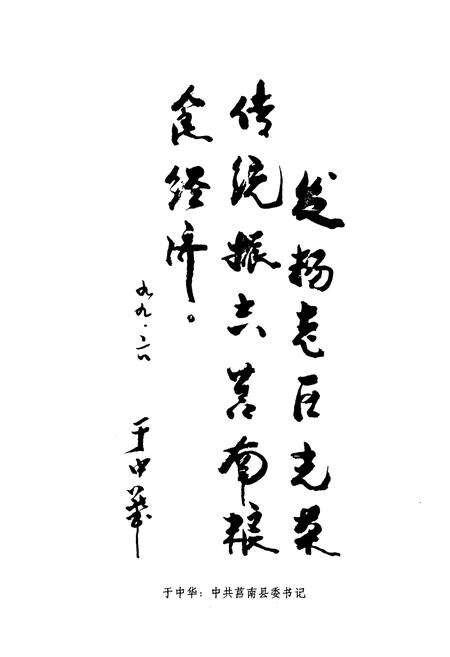 发扬老区光荣
传统振兴莒南粮
食经济。
九九.六
于中华
于中华：中共莒南县委书记